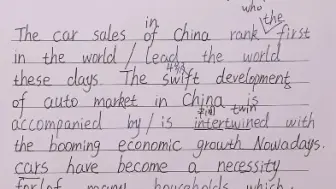 who
in the
The car sales of China rank first
in the world / lead the world
these days. The swift developments
of auto market in China is
twin
accompanied by / is intertwined with
the booming economic growth Nowadays.
cars have become a necessity
for/of many households which